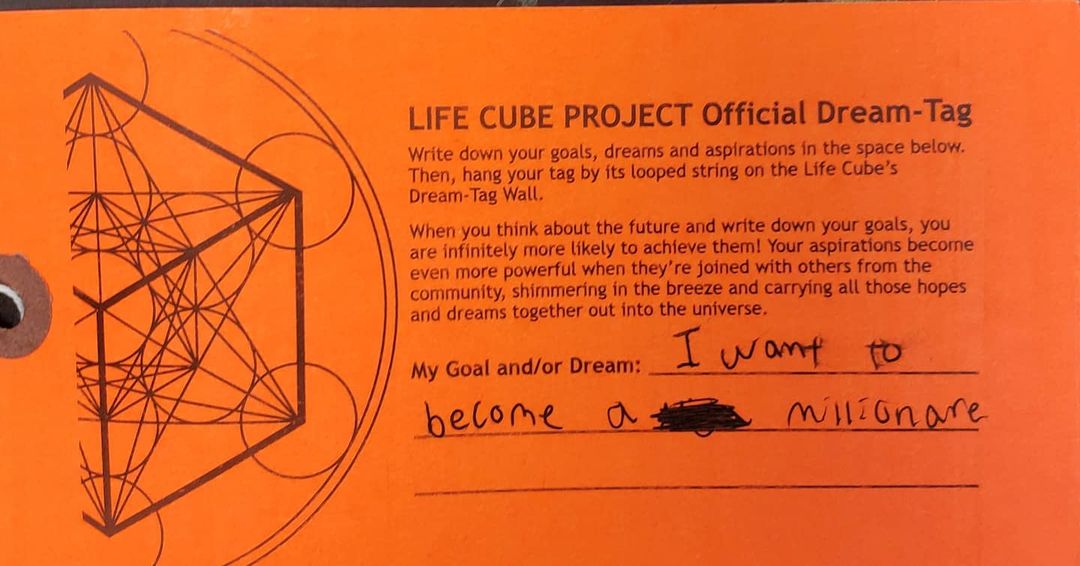 LIFE CUBE PROJECT Official Dream-Tag
Write down your goals, dreams and aspirations in the space below.
Then, hang your tag by its looped string on the Life Cube's
Dream-Tag Wall.
When you think about the future and write down your goals, you
are infinitely more likely to achieve them! Your aspirations become
even more powerful when they're joined with others from the
community, shimmering in the breeze and carrying all those hopes
and dreams together out into the universe.
My Goal and/or Dream: I want to
become a millionare